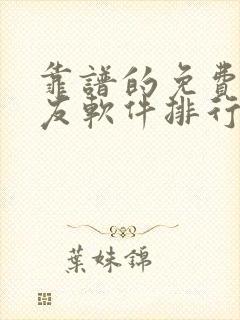 靠譜的免費
友軟件排行
葉妹錦